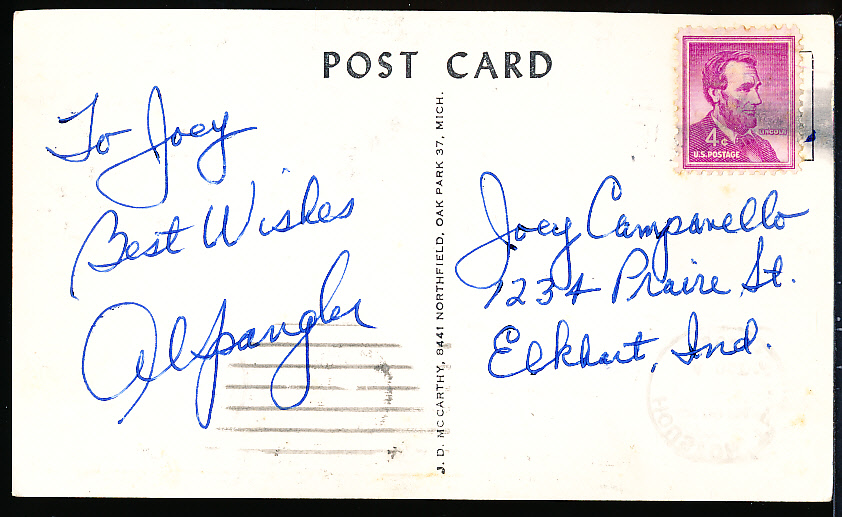 POST CARD
To Joey
Best Wishes
Al Spangler
J. D. MC CARTHY, 8441 NORTHFIELD, OAK PARK 37, MICH.
LINCOLN
4¢
U.S. POSTAGE
Joey Campanello
1234 Praire St.
Elkhart, Ind.